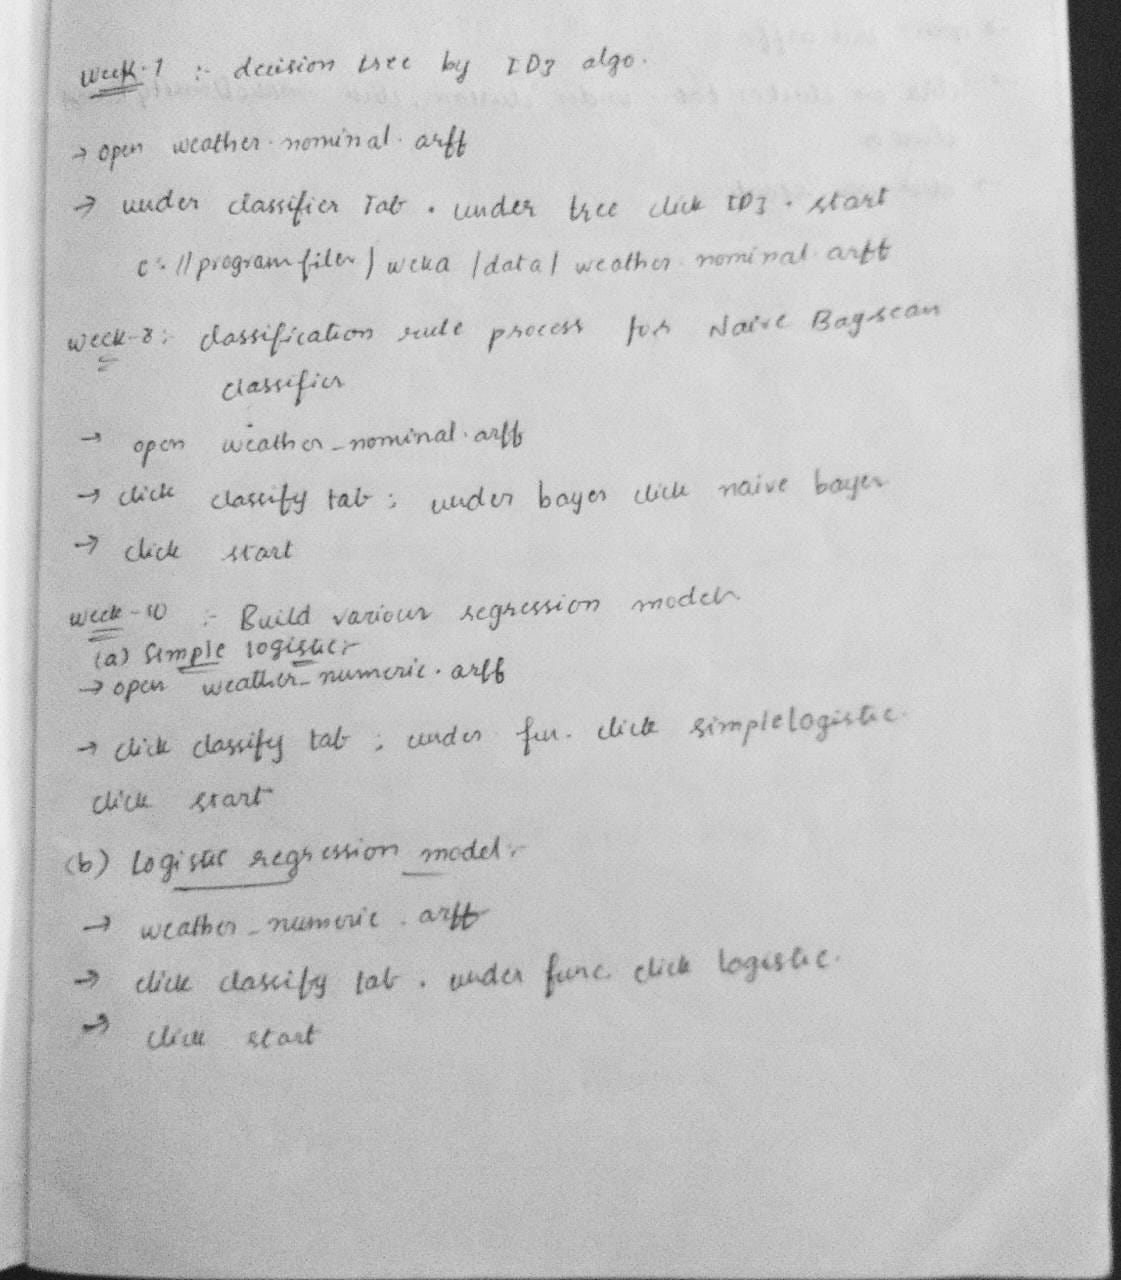 Week-7 :- decision tree by ID3 algo.
→ open weather.nominal.arff
→ under classifier Tab. under tree click ID3. start
c://program files/weka/data/weather.nominal.arff
week-8:- classification rule process for Naive Bayesean
classifier
→ open weather_nominal.arff
→ click classify tab; under bayes click naive bayes
→ click start
week-10 :- Build various regression models
(a) Simple logistic:-
→ open weather_numeric.arff
→ click classify tab; under fun. click simplelogistic.
click start
(b) Logistic regression model:-
→ weather_numeric.arff
→ click classify tab. under func. click logistic.
→ click start